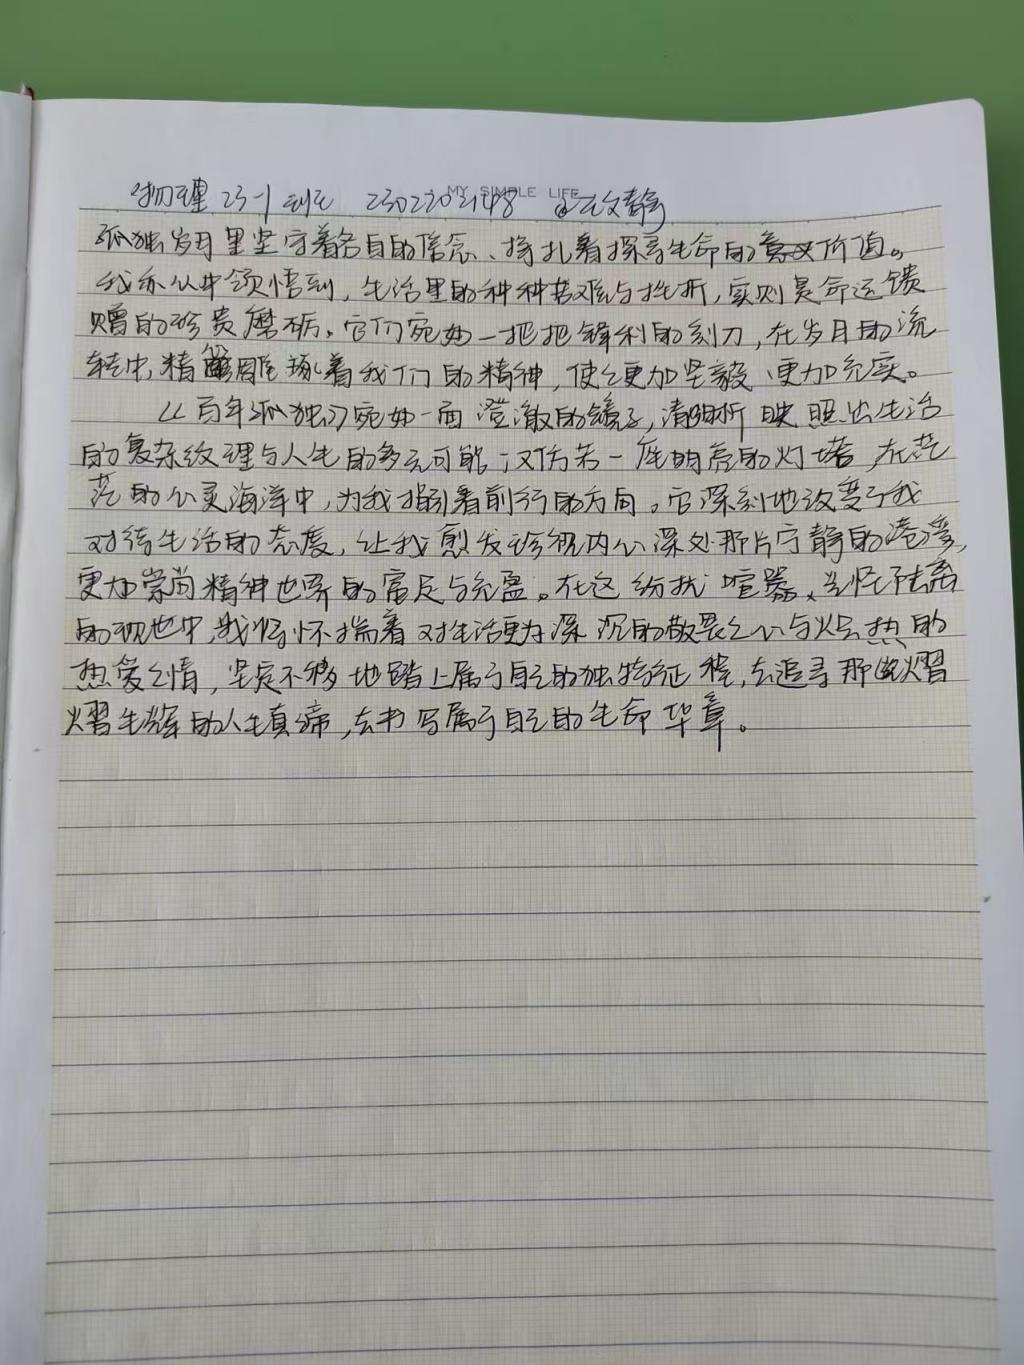 物理23-1班 文静
MY SIMPLE LIFE
孤独岁月里坚守着各自的信念、挣扎着探寻生命的意义价值。
我亦从中领悟到，生活里的种种苦难与挫折，实则是命运馈
赠的珍贵磨砺。它们宛如一把把锋利的刻刀，在岁月的流
转中，精雕琢着我们的精神，使之更加坚毅、更加充实。
《百年孤独》宛如一面澄澈的镜子，清晰映照出生活
的复杂纹理与人生的多元可能；又仿若一座明亮的灯塔，在茫
茫的心灵海洋中，为我指引着前行的方向。它深刻地改变了我
对待生活的态度，让我愈发珍视内心深处那片宁静的港湾，
更加崇尚精神世界的富足与充盈。在这纷扰喧嚣、光怪陆离
的现世中，我将怀揣着对生活更为深沉的敬畏之心与火热的
热爱之情，坚定不移地踏上属于自己的独特征程，去追寻那熠
熠生辉的人生真谛，去书写属于自己的生命华章。